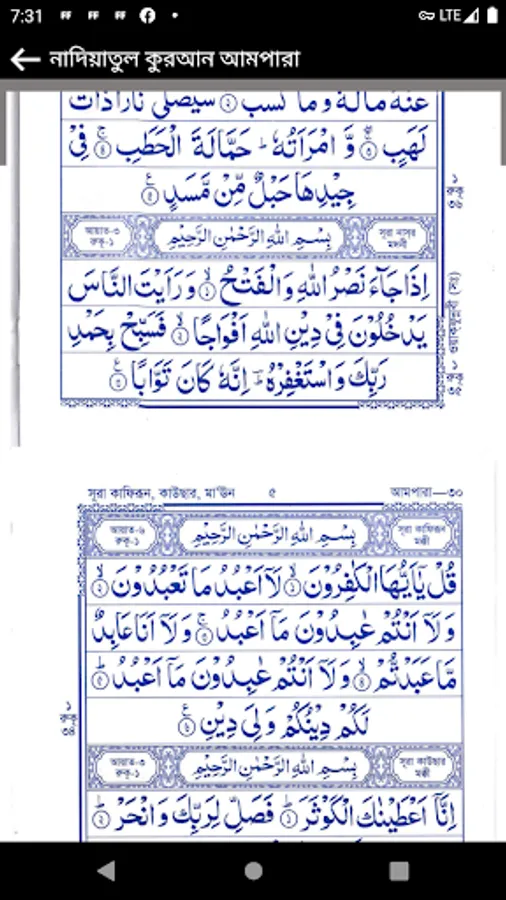 7:31 LTE
নাদিয়াতুল কুরআন আমপারা
عَنْهُ مَالُهٗ وَمَا كَسَبَ ۝٢ سَيَصْلٰى نَارًا ذَاتَ
لَهَبٍ ۝٣ وَّ امْرَاَتُهٗ ؕ حَمَّالَةَ الْحَطَبِ ۝٤ فِيْ
جِيْدِهَا حَبْلٌ مِّنْ مَّسَدٍ ۝٥
১
রুকু
৩৬
সূরা নাস্‌র
মদনী
بِسْمِ اللّٰهِ الرَّحْمٰنِ الرَّحِيْمِ
আয়াত-৩
রুকু-১
اِذَا جَآءَ نَصْرُ اللّٰهِ وَالْفَتْحُ ۝١ وَ رَاَيْتَ النَّاسَ
يَدْخُلُوْنَ فِيْ دِيْنِ اللّٰهِ اَفْوَاجًا ۝٢ فَسَبِّحْ بِحَمْدِ
رَبِّكَ وَ اسْتَغْفِرْهُ ؕ اِنَّهٗ كَانَ تَوَّابًا ۝٣
১
রুকু
৩৫
সূরা কাফিরূন, কাউছার, মা'ঊন ৫ আমপারা—৩০
সূরা কাফিরূন
মক্কী
بِسْمِ اللّٰهِ الرَّحْمٰنِ الرَّحِيْمِ
আয়াত-৬
রুকু-১
قُلْ يٰۤاَيُّهَا الْكٰفِرُوْنَ ۝١ لَاۤ اَعْبُدُ مَا تَعْبُدُوْنَ ۝٢
وَ لَاۤ اَنْتُمْ عٰبِدُوْنَ مَاۤ اَعْبُدُ ۝٣ وَ لَاۤ اَنَا عَابِدٌ
مَّا عَبَدْتُّمْ ۝٤ وَ لَاۤ اَنْتُمْ عٰبِدُوْنَ مَاۤ اَعْبُدُ ۝٥
لَكُمْ دِيْنُكُمْ وَلِيَ دِيْنِ ۝٦
১
রুকু
৩৪
সূরা কাউছার
মক্কী
بِسْمِ اللّٰهِ الرَّحْمٰنِ الرَّحِيْمِ
আয়াত-৩
রুকু-১
اِنَّاۤ اَعْطَيْنٰكَ الْكَوْثَرَ ۝١ فَصَلِّ لِرَبِّكَ وَ انْحَرْ ۝٢